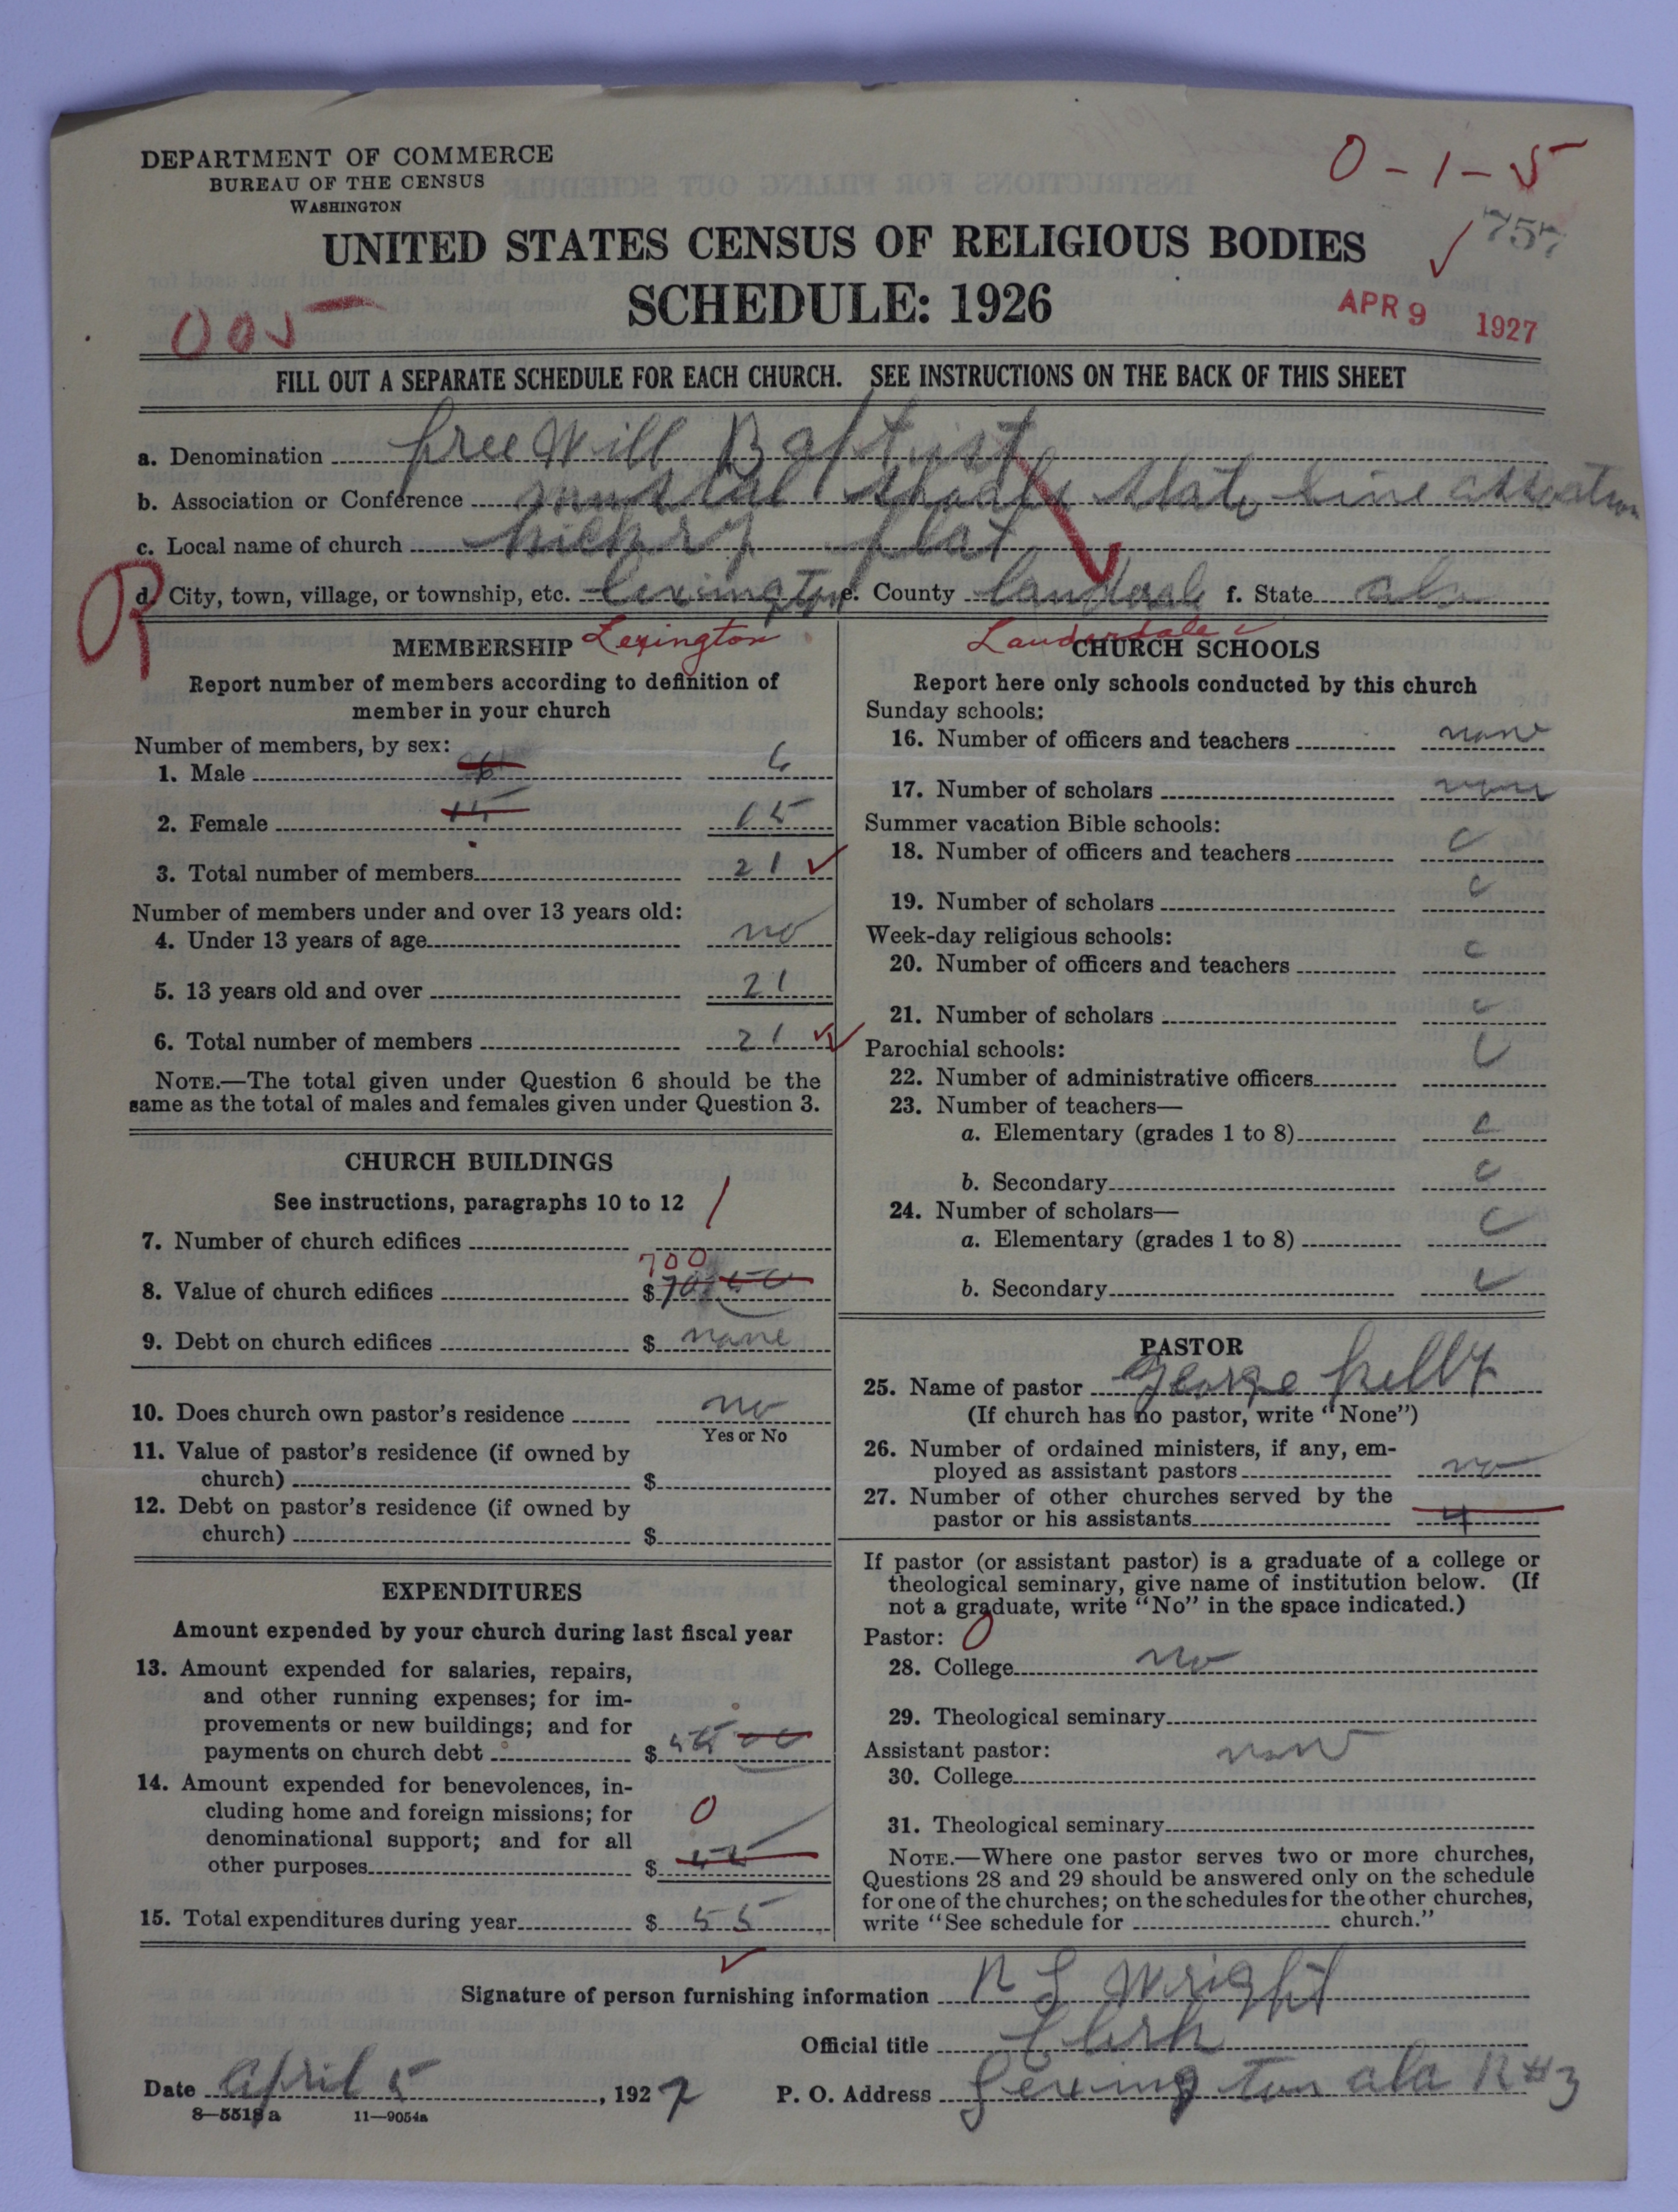 DEPARTMENT OF COMMERCE
BUREAU OF THE CENSUS
WASHINGTON
0-1-5
UNITED STATES CENSUS OF RELIGIOUS BODIES
757
SCHEDULE: 1926
APR 9 1927
005
FILL OUT A SEPARATE SCHEDULE FOR EACH CHURCH. SEE INSTRUCTIONS ON THE BACK OF THIS SHEET
a. Denomination free Will Baptist
b. Association or Conference State line
c. Local name of church hickry flat
d. City, town, village, or township, etc. lexington e. County f. State ala
MEMBERSHIP Lexington
Report number of members according to definition of
member in your church
Number of members, by sex:
1. Male 6 6
2. Female 15 15
3. Total number of members 21
Number of members under and over 13 years old:
4. Under 13 years of age no
5. 13 years old and over 21
6. Total number of members 21
NOTE.—The total given under Question 6 should be the
same as the total of males and females given under Question 3.
CHURCH BUILDINGS
See instructions, paragraphs 10 to 12
7. Number of church edifices 1
700
8. Value of church edifices $
9. Debt on church edifices $ none
10. Does church own pastor's residence no
Yes or No
11. Value of pastor's residence (if owned by
church) $
12. Debt on pastor's residence (if owned by
church) $
EXPENDITURES
Amount expended by your church during last fiscal year
13. Amount expended for salaries, repairs,
and other running expenses; for im-
provements or new buildings; and for
payments on church debt $ 55 00
14. Amount expended for benevolences, in-
cluding home and foreign missions; for 0
denominational support; and for all
other purposes $
15. Total expenditures during year $ 55
Lauderdale
CHURCH SCHOOLS
Report here only schools conducted by this church
Sunday schools:
16. Number of officers and teachers none
17. Number of scholars none
Summer vacation Bible schools:
18. Number of officers and teachers c
19. Number of scholars c
Week-day religious schools:
20. Number of officers and teachers c
21. Number of scholars c
Parochial schools:
22. Number of administrative officers c
23. Number of teachers—
a. Elementary (grades 1 to 8) c
b. Secondary c
24. Number of scholars—
a. Elementary (grades 1 to 8) c
b. Secondary c
PASTOR
25. Name of pastor George
(If church has no pastor, write "None")
26. Number of ordained ministers, if any, em-
ployed as assistant pastors no
27. Number of other churches served by the
pastor or his assistants 4
If pastor (or assistant pastor) is a graduate of a college or
theological seminary, give name of institution below. (If
not a graduate, write "No" in the space indicated.)
Pastor: 0
28. College no
29. Theological seminary
Assistant pastor: none
30. College
31. Theological seminary
NOTE.—Where one pastor serves two or more churches,
Questions 28 and 29 should be answered only on the schedule
for one of the churches; on the schedules for the other churches,
write "See schedule for church."
Signature of person furnishing information R L Wright
Official title Clerk
Date April 5, 1927 P. O. Address Lexington ala R#3
8—5518 a 11—9054a